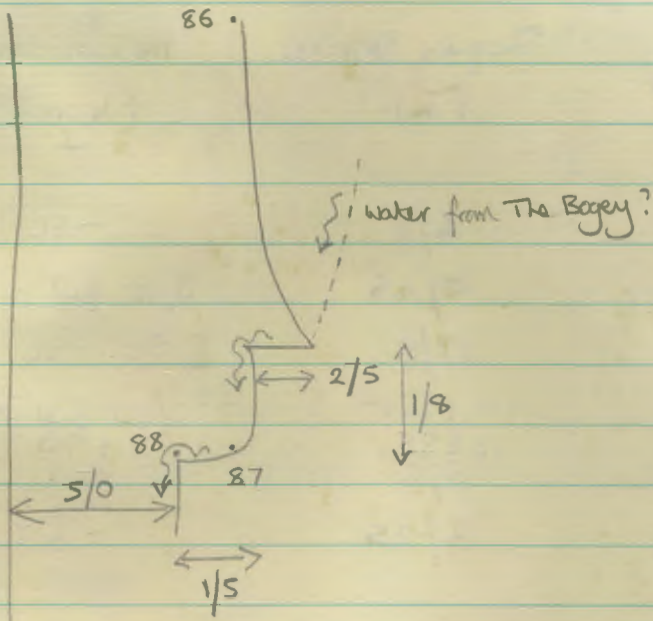 86
water from The Bogey?
2/5
1/8
88
87
5/0
1/5